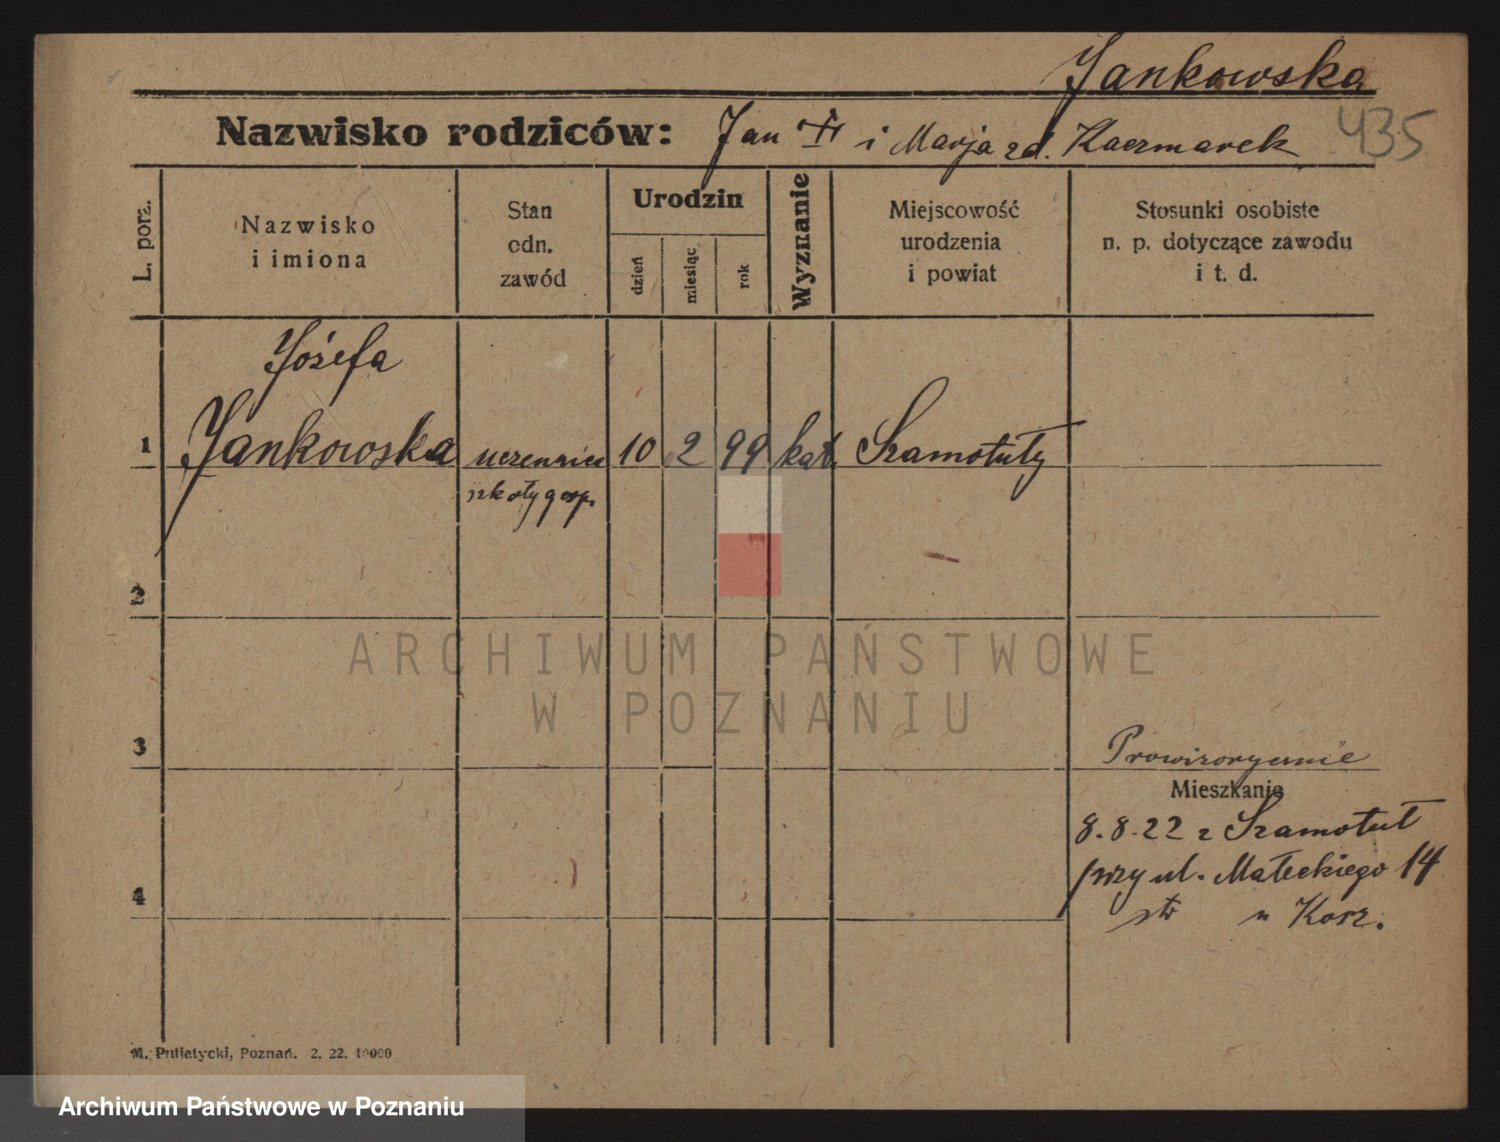 Jankowska
435
Nazwisko rodziców: Jan i Marja zd. Kaczmarek
L. porz.
Nazwisko
i imiona
Stan
odn.
zawód
Urodzin
dzień
miesiąc
rok
Wyznanie
Miejscowość
urodzenia
i powiat
Stosunki osobiste
n. p. dotyczące zawodu
i t. d.
Józefa
1 Jankowska uczennica 10 2 99 kat. Szamotuły
szkoły gosp.
2
ARCHIWUM PAŃSTWOWE
W POZNANIU
3
Prowizorycznie
Mieszkanie
8.8.22 z Szamotuł
przy ul. Małeckiego 14
4
u Korz.
M. Putiatycki, Poznań. 2. 22. 10000
Archiwum Państwowe w Poznaniu